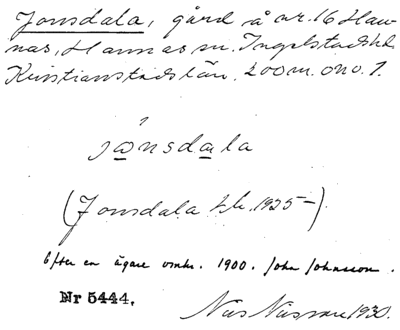 Jonsdala, gård å nr. 16 Ham-
nas, Hannas sn. Ingelstads hd.
Kristianstads län. 200 m. ono. 1.
jónsdala
(Jonsdala tk. 1925-).
Efter en ägare omkr. 1900. John Johnsson.
Nr 5444.
Nils 1930.